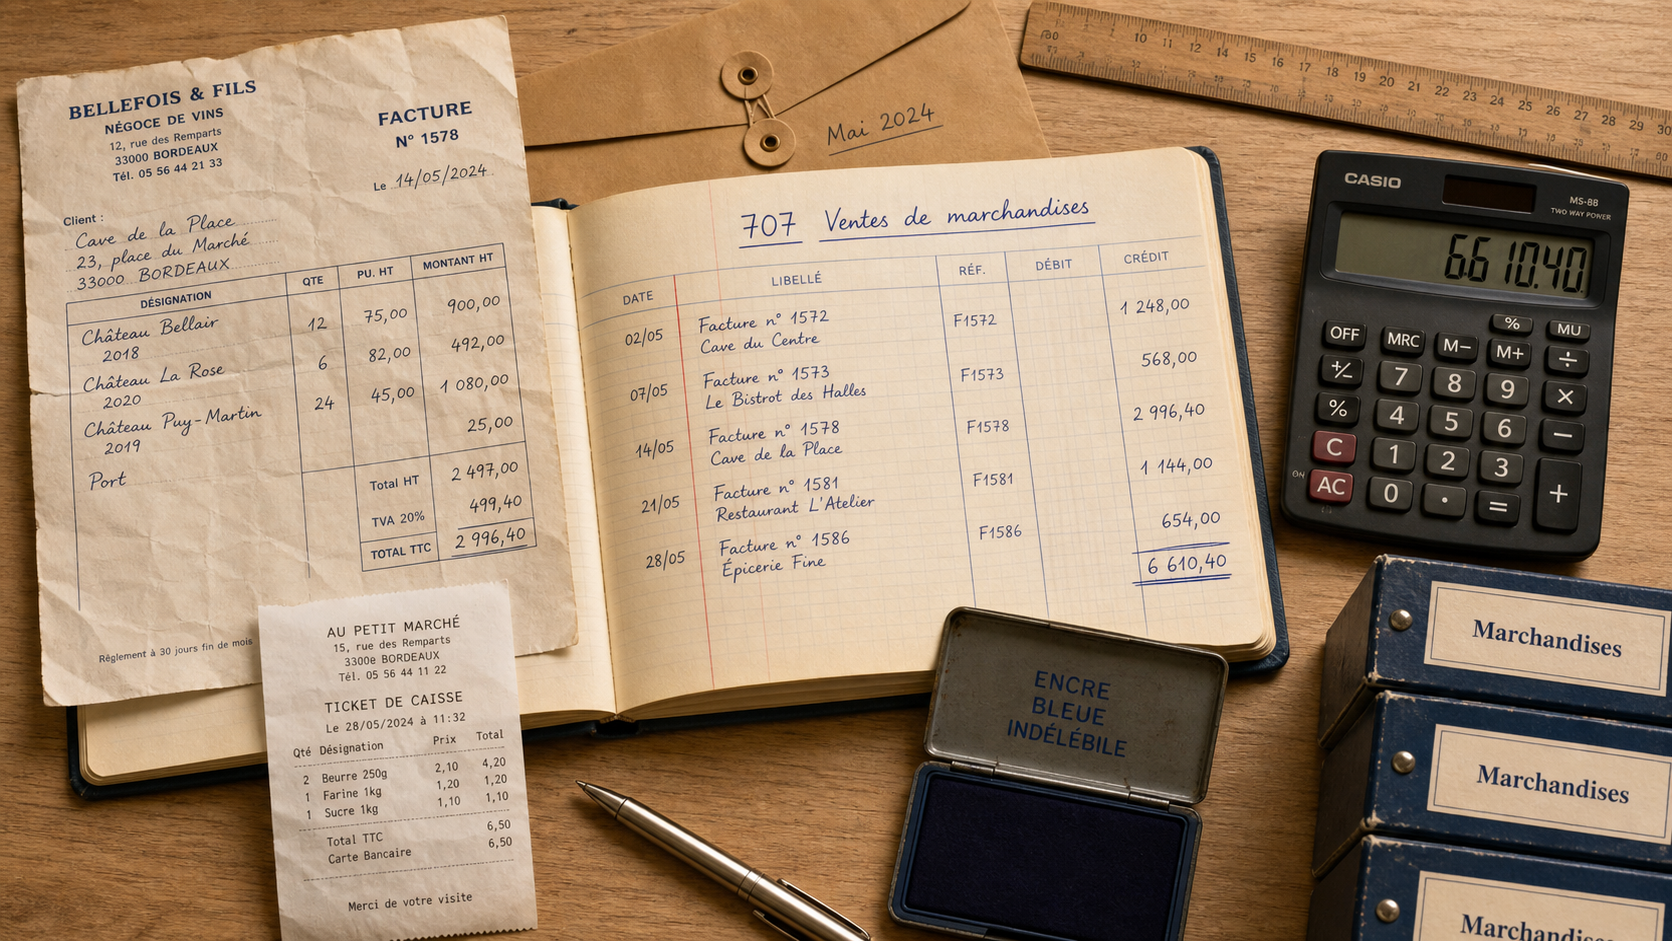 BELLEFOIS & FILS
NÉGOCE DE VINS
12, rue des Remparts
33000 BORDEAUX
Tél. 05 56 44 21 33
FACTURE
N° 1578
Le 14/05/2024
Client :
Cave de la Place
23, place du Marché
33000 BORDEAUX
DÉSIGNATION QTE PU. HT MONTANT HT
Château Bellair 12 75,00 900,00
2018
Château La Rose 6 82,00 492,00
2020
Château Puy-Martin 24 45,00 1 080,00
2019
Port 25,00
Total HT 2 497,00
TVA 20% 499,40
TOTAL TTC 2 996,40
Règlement à 30 jours fin de mois
Mai 2024
707 Ventes de marchandises
DATE LIBELLÉ RÉF. DÉBIT CRÉDIT
02/05 Facture n° 1572 F1572 1 248,00
Cave du Centre
07/05 Facture n° 1573 F1573 568,00
Le Bistrot des Halles
14/05 Facture n° 1578 F1578 2 996,40
Cave de la Place
21/05 Facture n° 1581 F1581 1 144,00
Restaurant L'Atelier
28/05 Facture n° 1586 F1586 654,00
Épicerie Fine
6 610,40
AU PETIT MARCHÉ
15, rue des Remparts
3300e BORDEAUX
Tél. 05 56 44 11 22
TICKET DE CAISSE
Le 28/05/2024 à 11:32
Qté Désignation Prix Total
2 Beurre 250g 2,10 4,20
1 Farine 1kg 1,20 1,20
1 Sucre 1kg 1,10 1,10
Total TTC 6,50
Carte Bancaire 6,50
Merci de votre visite
ENCRE
BLEUE
INDÉLÉBILE
CASIO
MS-88
TWO WAY POWER
6.610.40
% MU
OFF MRC M− M+ ÷
+/− 7 8 9 ×
% 4 5 6 −
C 1 2 3 +
ON AC 0 · =
10 11 12 13 14 15 16 17 18 19 20 21 22 23 24 25 26 27 28 29 30
Marchandises
Marchandises
Marchandises